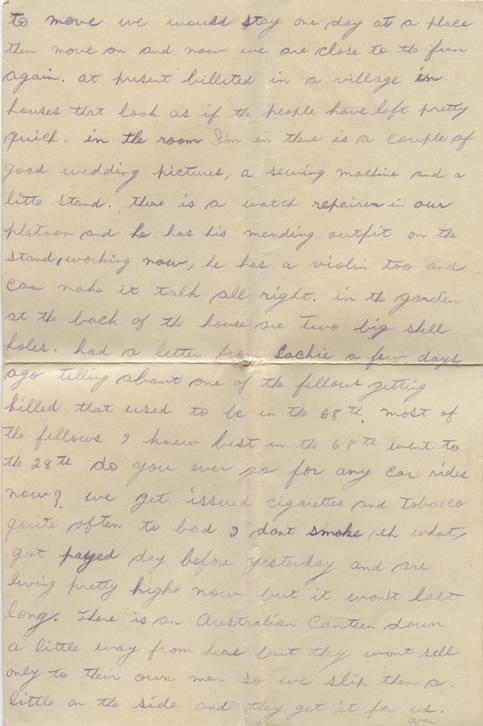 to move we would stay one day at a place
then move on and now we are close to the fun
again. at present billited in a village in
houses that look as if the people have left pretty
quick. in the room I'm in there is a couple of
good wedding pictures, a sewing machine and a
little stand. there is a watch repairer in our
platoon and he has his mending outfit on the
stand, working now, he has a violin too and
can make it talk all right. in the garden
at the back of the house are two big shell
holes. had a letter from Lachie a few days
ago telling about one of the fellows getting
killed that used to be in the 68th. most of
the fellows I knew best in the 68th went to
the 28th do you ever go for any car rides
now? we get issued cigarettes and tobacco
quite often to bad I dont smoke, eh what,
got payed day before yesterday and are
living pretty highe now but it wont last
long. There is an Australian Canteen down
a little way from here but they wont sell
only to their own men so we slip them a
little on the side and they get it for us.
over